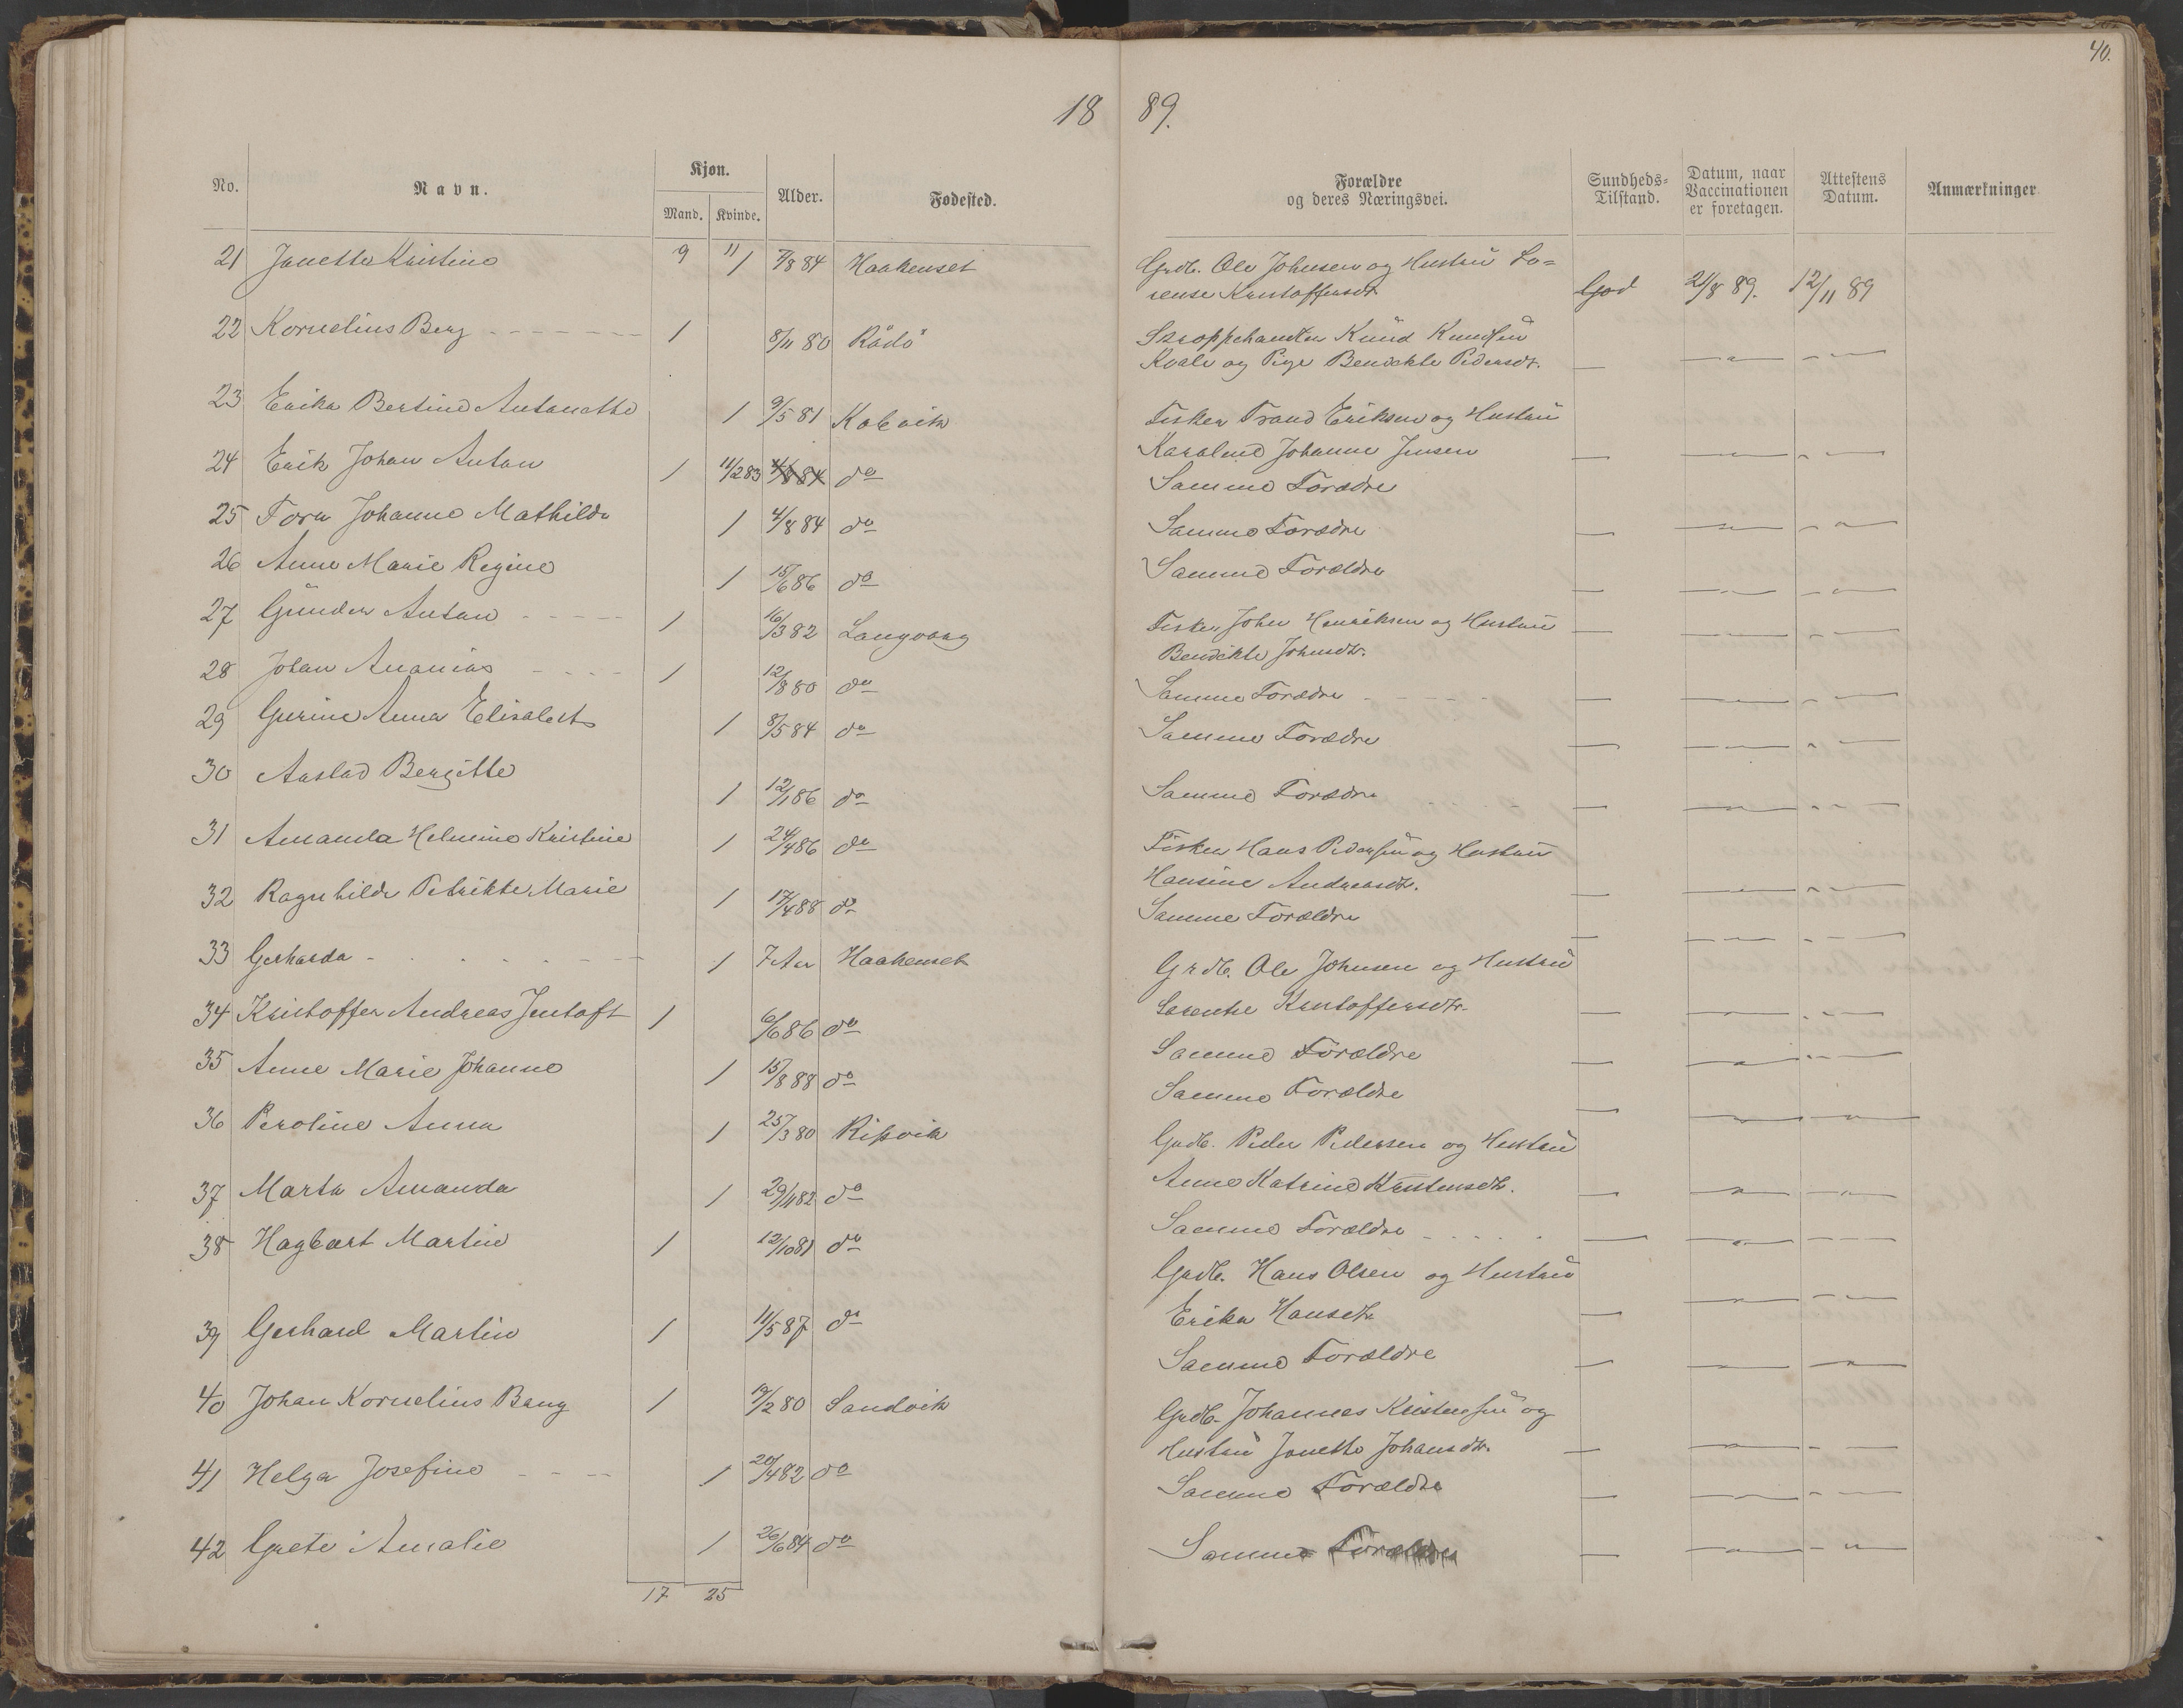 40.
18 89.
No. Navn. Kjøn. Mand. Kvinde. Alder. Fødested. Forældre og deres Næringsvei. Sundheds-Tilstand. Datum, naar Vaccinationen er foretagen. Attestens Datum. Anmærkninger.
21 Janette Kristine 9 11 1 7/8 84 Haakenset Grdb. Ole Johnsen og Hustru Lo=
rense Kristoffersdt. God 21/8 89. 12/11 89
22 Kornelius Berg 1 8/11 80 Rådö Skroppehandler Knud Knudsen
Kvale og Pige Bendikte Pedersdt. — " — " —
23 Erika Bertine Antonette 1 9/5 81 Kobvik Fisker Trand Eriksen og Hustru
Karoline Johanne Jensen — " — " —
24 Erik Johan Anton 1 11/2 83 4/8 84 do Samme Forædre
25 Tora Johanne Mathilde 1 4/8 84 do Samme Forædre — " — " —
26 Anne Marie Regine 1 15/6 86 do Samme Forældre — " — " —
27 Gunder Antan 1 16/3 82 Langvaag Fisker John Henriksen og Hustru — " — " —
Bendikte Johnsdt.
28 Johan Ananias 1 12/8 80 do Samme Forædre — " — " —
29 Gurine Anna Elisabet 1 8/5 84 do Samme Forædre — " — " —
30 Aaslad Bergitte 1 12/1 86 do Samme Forædre — " — " —
31 Amanda Helmine Kristine 1 24/4 86 do Fisker Hans Pedersen og Hustru
Hansine Andreasdt. — " — " —
32 Ragnhilde Petrikke Marie 1 17/4 88 do Samme Forældre — " — " —
33 Gerharda 1 7 Aar Haakenset Grdb. Ole Johnsen og Hustru
Lorentse Kristoffersdtr. — " — " —
34 Kristoffer Andreas Jentoft 1 6/6 86 do Samme Forældre — " — " —
35 Anne Marie Johanne 1 15/8 88 do Samme Forældre — " — " —
36 Peroline Anna 1 25/3 80 Risvik Grdb. Peder Pedersen og Hustru
Anne Katrine Kristensdtr. — " — " —
37 Marta Amanda 1 29/4 82 do Samme Forældre — " — " —
38 Hagbart Martin 1 12/10 81 do Grdb. Hans Olsen og Hustru
Erika Hansdtr — " — " —
39 Gerhard Martin 1 11/5 87 do Samme Forældre — " — " —
40 Johan Kornelius Bang 1 19/2 80 Sandvik Grdb. Johannes Kristensen og
Hustru Janette Johansdtr. — " — " —
41 Helga Josefine 1 20/4 82 do Samme Forældre — " — " —
42 Grete Amalie 1 26/6 84 do Samme Forældre — " — " —
17 25